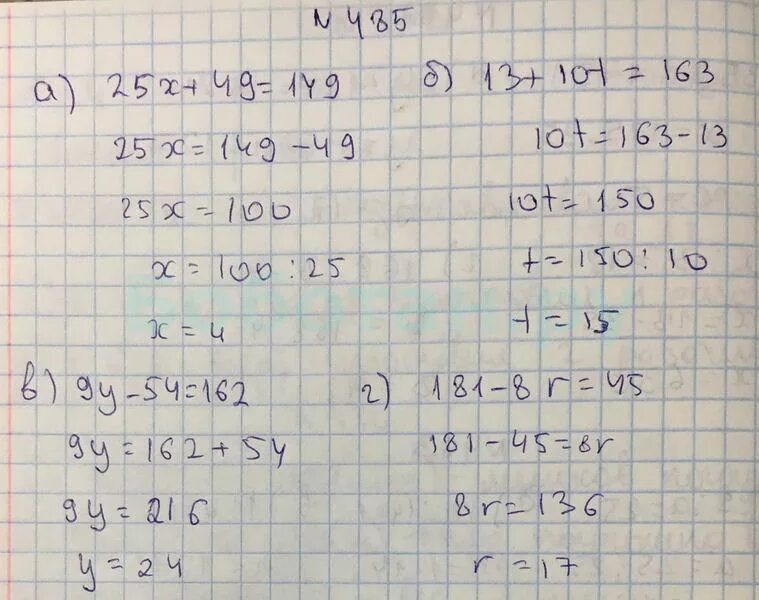 N 485
а) 25x + 49 = 149
25x = 149 - 49
25x = 100
x = 100 : 25
x = 4
б) 13 + 10t = 163
10t = 163 - 13
10t = 150
t = 150 : 10
t = 15
в) 9y - 54 = 162
9y = 162 + 54
9y = 216
y = 24
г) 181 - 8r = 45
181 - 45 = 8r
8r = 136
r = 17